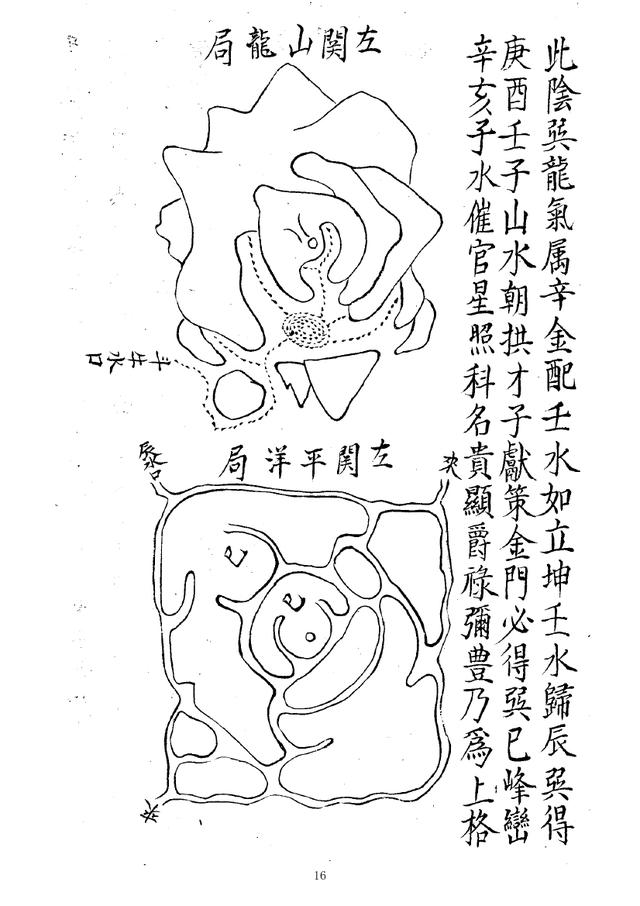 此陰巽龍氣属辛金配壬水如立坤壬水歸辰巽得
庚酉壬子山水朝拱才子獻策金門必得巽巳峰巒
辛亥子水催官星照科名貴顯爵祿彌豊乃爲上格
左関山龍局
斗牛水口
左関平洋局
辰水口
16